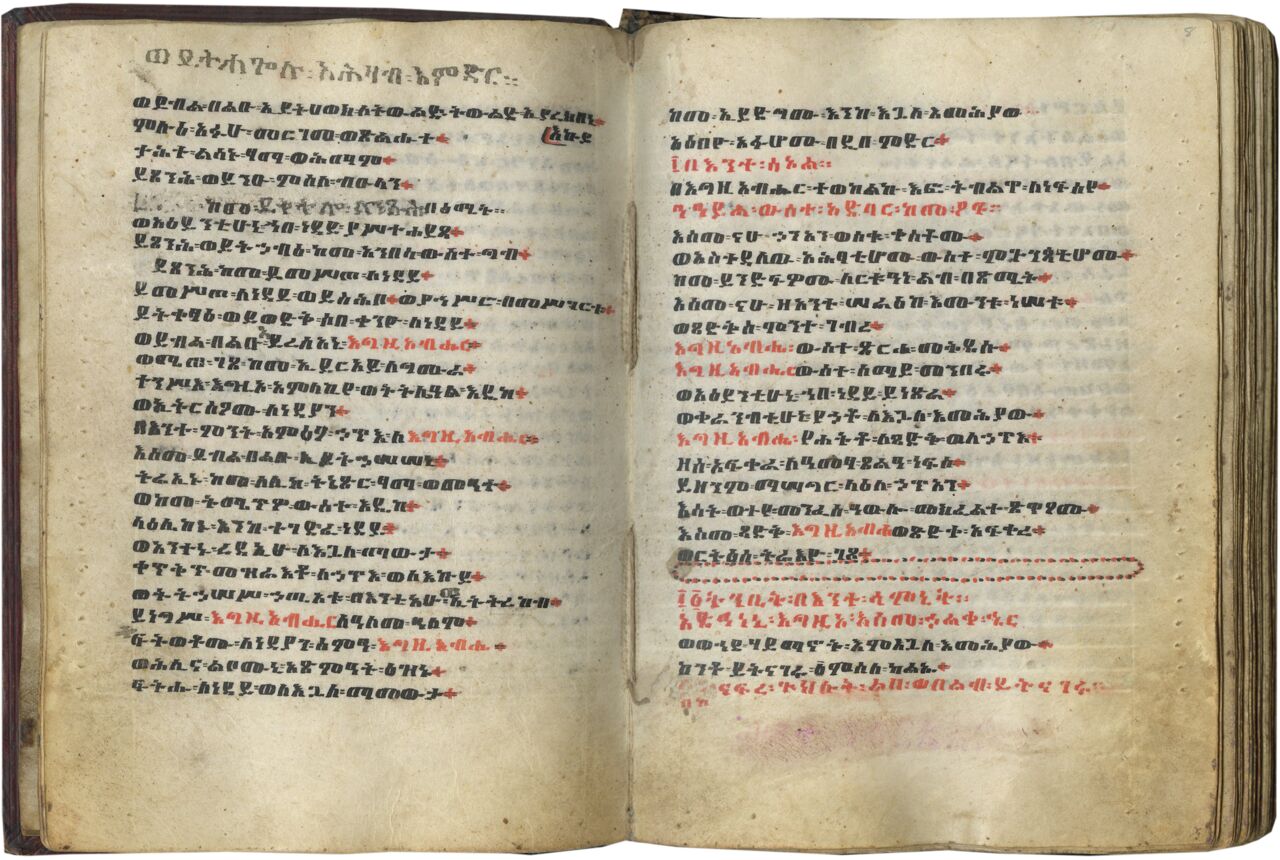 ወይትሐጐሉ፡አሕዛብ፡እምድር።
ወይብል፡በልቡ፡ኢይትሀወክ፡ለትውልደ፡ትውልድ፡ኢያረክበኒ፡
ምሉእ፡አፉሁ፡መርገመ፡ወጽልሑተ፡
ታሕተ፡ልሳኑ፡ፃማ፡ወሕማም፡
ይጸንሕ፡ወይንዑ፡ምስለ፡ብዑላን፡
ከመ፡ይቅትሎ፡ለንጹሕ፡በጽሚት።
ወአዕይንቲሁኒ፡ኀበ፡ነዳይ፡ያስተሐይጻ፡
ይጸንሕ፡ወይትኀብእ፡ከመ፡አንበሳ፡ውስተ፡ግብ፡
ይጸንሕ፡ከመ፡ይመሥጦ፡ለነዳይ፡
ይመሥጦ፡ለነዳይ፡ወይስሕቦ፡ወያኀሥሮ፡በመሥገርቱ፡
ይትቀጻዕ፡ወይወድቅ፡ሶበ፡ቀንዮ፡ለነዳይ፡
ወይብል፡በልቡ፡ይረስአኒ፡እግዚአብሔር፡
ወሜጠ፡ገጾ፡ከመ፡ኢይርአይ፡ለግሙራ፡
ተንሥእ፡እግዚኦ፡አምላኪየ፡ወትትሌዓል፡እዴከ፡
ወኢትርስዖሙ፡ለነዳያን፡
በእንተ፡ምንት፡አምዕዖ፡ኃጥእ፡ለእግዚአብሔር፡
እስመ፡ይብል፡በልቡ፡ኢይትኃሠሠኒ፡
ትሬእኑ፡ከመ፡ለሊከ፡ትኔጽር፡ፃማ፡ወመዓተ፡
ወከመ፡ትሜጥዎ፡ውስተ፡እዴከ፡
ላዕሌከኑ፡እንከ፡ተገድፈ፡ነዳይ፡
ወአንተኑ፡ረዳኢሁ፡ለእጓለ፡ማውታ፡
ቀጥቅጥ፡መዝራእቶ፡ለኃጥእ፡ወለእኩይ፡
ወትትኃሠሥ፡ኃጢአቱ፡በእንቲአሁ፡ኢትትረከብ፡
ይነግሥ፡እግዚአብሔር፡ለዓለመ፡ዓለም፡
ፍትወቶሙ፡ለነዳያን፡ሰምዓ፡እግዚአብሔር፡
ወሕሊና፡ልቦሙኒ፡አጽምዓት፡ዕዝኑ፡
ፍትሑ፡ለነዳይ፡ወለእጓለ፡ማውታ፡
ከመ፡ኢይድግሙ፡እንከ፡እጓለ፡እመሕያው
አዕብዮ፡አፉሆሙ፡በዲበ፡ምድር፡
፲በእንተ፡ሶኦል።
በእግዚአብሔር፡ተወከልኩ፡እፎ፡ትብልዋ፡ለነፍስየ፡
ንዒ፡ውስተ፡አድባር፡ከመ፡ዖፍ።
እስመ፡ናሁ፡ኃጥኣን፡ወሰቁ፡ቀስቶሙ፡
ወአስተዳለው፡አሕፃቲሆሙ፡ውስተ፡ምጕንጳቲሆሙ፡
ከመ፡ይንድፍዎሙ፡ለርቱዓነ፡ልብ፡በጽሚት፡
እስመ፡ናሁ፡ዘአንተ፡ሠራዕከ፡እሙንቱ፡ነሠቱ፡
ወጻድቅሰ፡ምንተ፡ገብረ፡
እግዚአብሔር፡ውስተ፡ጽርሐ፡መቅደሱ፡
እግዚአብሔር፡ውስተ፡ሰማይ፡መንበሩ፡
ወአዕይንቲሁኒ፡ኀበ፡ነዳይ፡ይኔጽራ፡
ወቀራንብቲሁኒ፡የኃትቶ፡ለእጓለ፡እመሕያው፡
እግዚአብሔር፡የሐትቶ፡ለጻድቅ፡ወለኃጥእ፡
ዘሰ፡አፍቀራ፡ለዓመፃ፡ጸልዓ፡ነፍሶ፡
ይዘንም፡መሣግር፡ላዕለ፡ኃጥኣን፡
እሳት፡ወተይ፡መንፈሰ፡ዓውሎ፡መክፈልተ፡ጽዋዖሙ፡
እስመ፡ጻድቅ፡እግዚአብሔር፡ወጽድቀ፡አፍቀረ፡
ወርትዕሰ፡ትሬእዮ፡ገጹ፡
፲፩ትንቢት፡በእንተ፡ሳምኒት።
አድኅነኒ፡እግዚኦ፡እስመ፡ኃልቀ፡ኄር
ወውኅደ፡ሃይማኖት፡እምእጓለ፡እመሕያው፡
ከንቶ፡ይትናገሩ፡፩ምስለ፡ካልኡ፡
በከናፍረ፡ጕሕሉት፡ልብ፡ወበልብ፡ይትናገሩ።